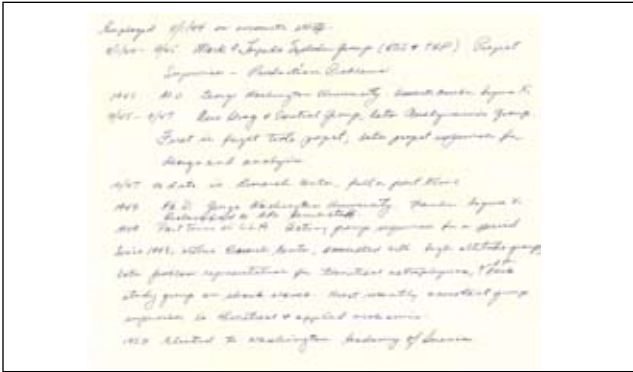 Employed 5/1/44 on
5/1/44 - 9/45 Mark 9 Torpedo Exploder Group ( & TNP) Project
Engineer - Production Problems
1945 M.S. George Washington University
9/45 - 9/47 Drag & Control Group, later Aerodynamics Group.
First in flight tests project, later project engineer for
design and analysis
10/47 to date in Research Center, full or part time
1949 Ph.D. George Washington University
1949 Part time in Acting group supervisor for a period
Since 1949, within Research Center, associated with high altitude group,
later problem representative for theoretical astrophysics, & task
study group on shock waves. Most recently assistant group
supervisor in theoretical & applied mechanics.
Elected to Washington Academy of Sciences